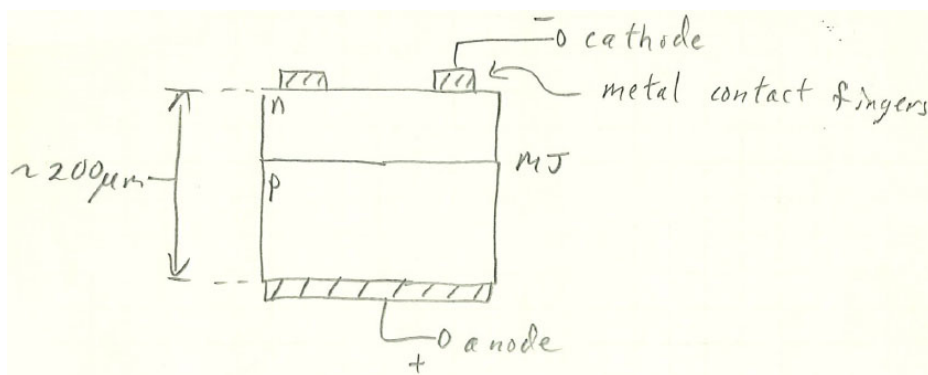 - cathode
metal contact fingers
n
MJ
~200μm
p
anode
+